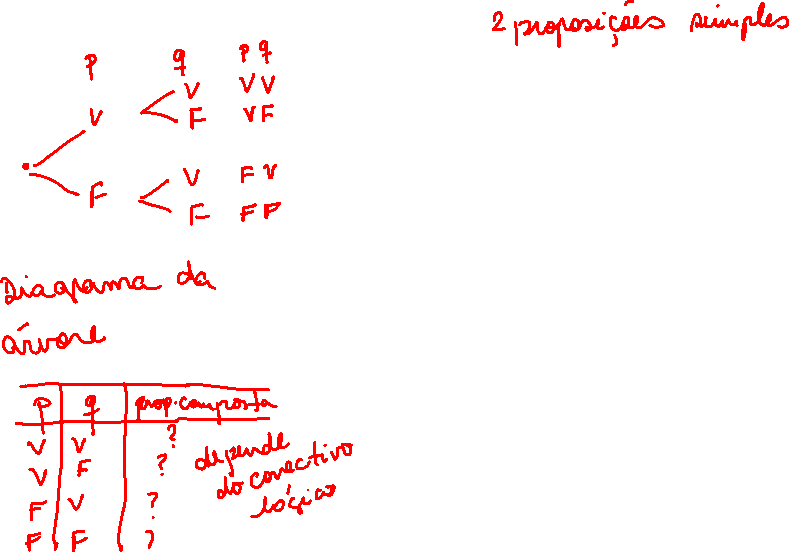 2 proposições simples
p q p q
V V V
V F V F
V
V F V
F
F F F
Diagrama da
árvore
p q prop. composta
V V ?
V F ?
F V ?
F F ?
depende
do conectivo
lógico